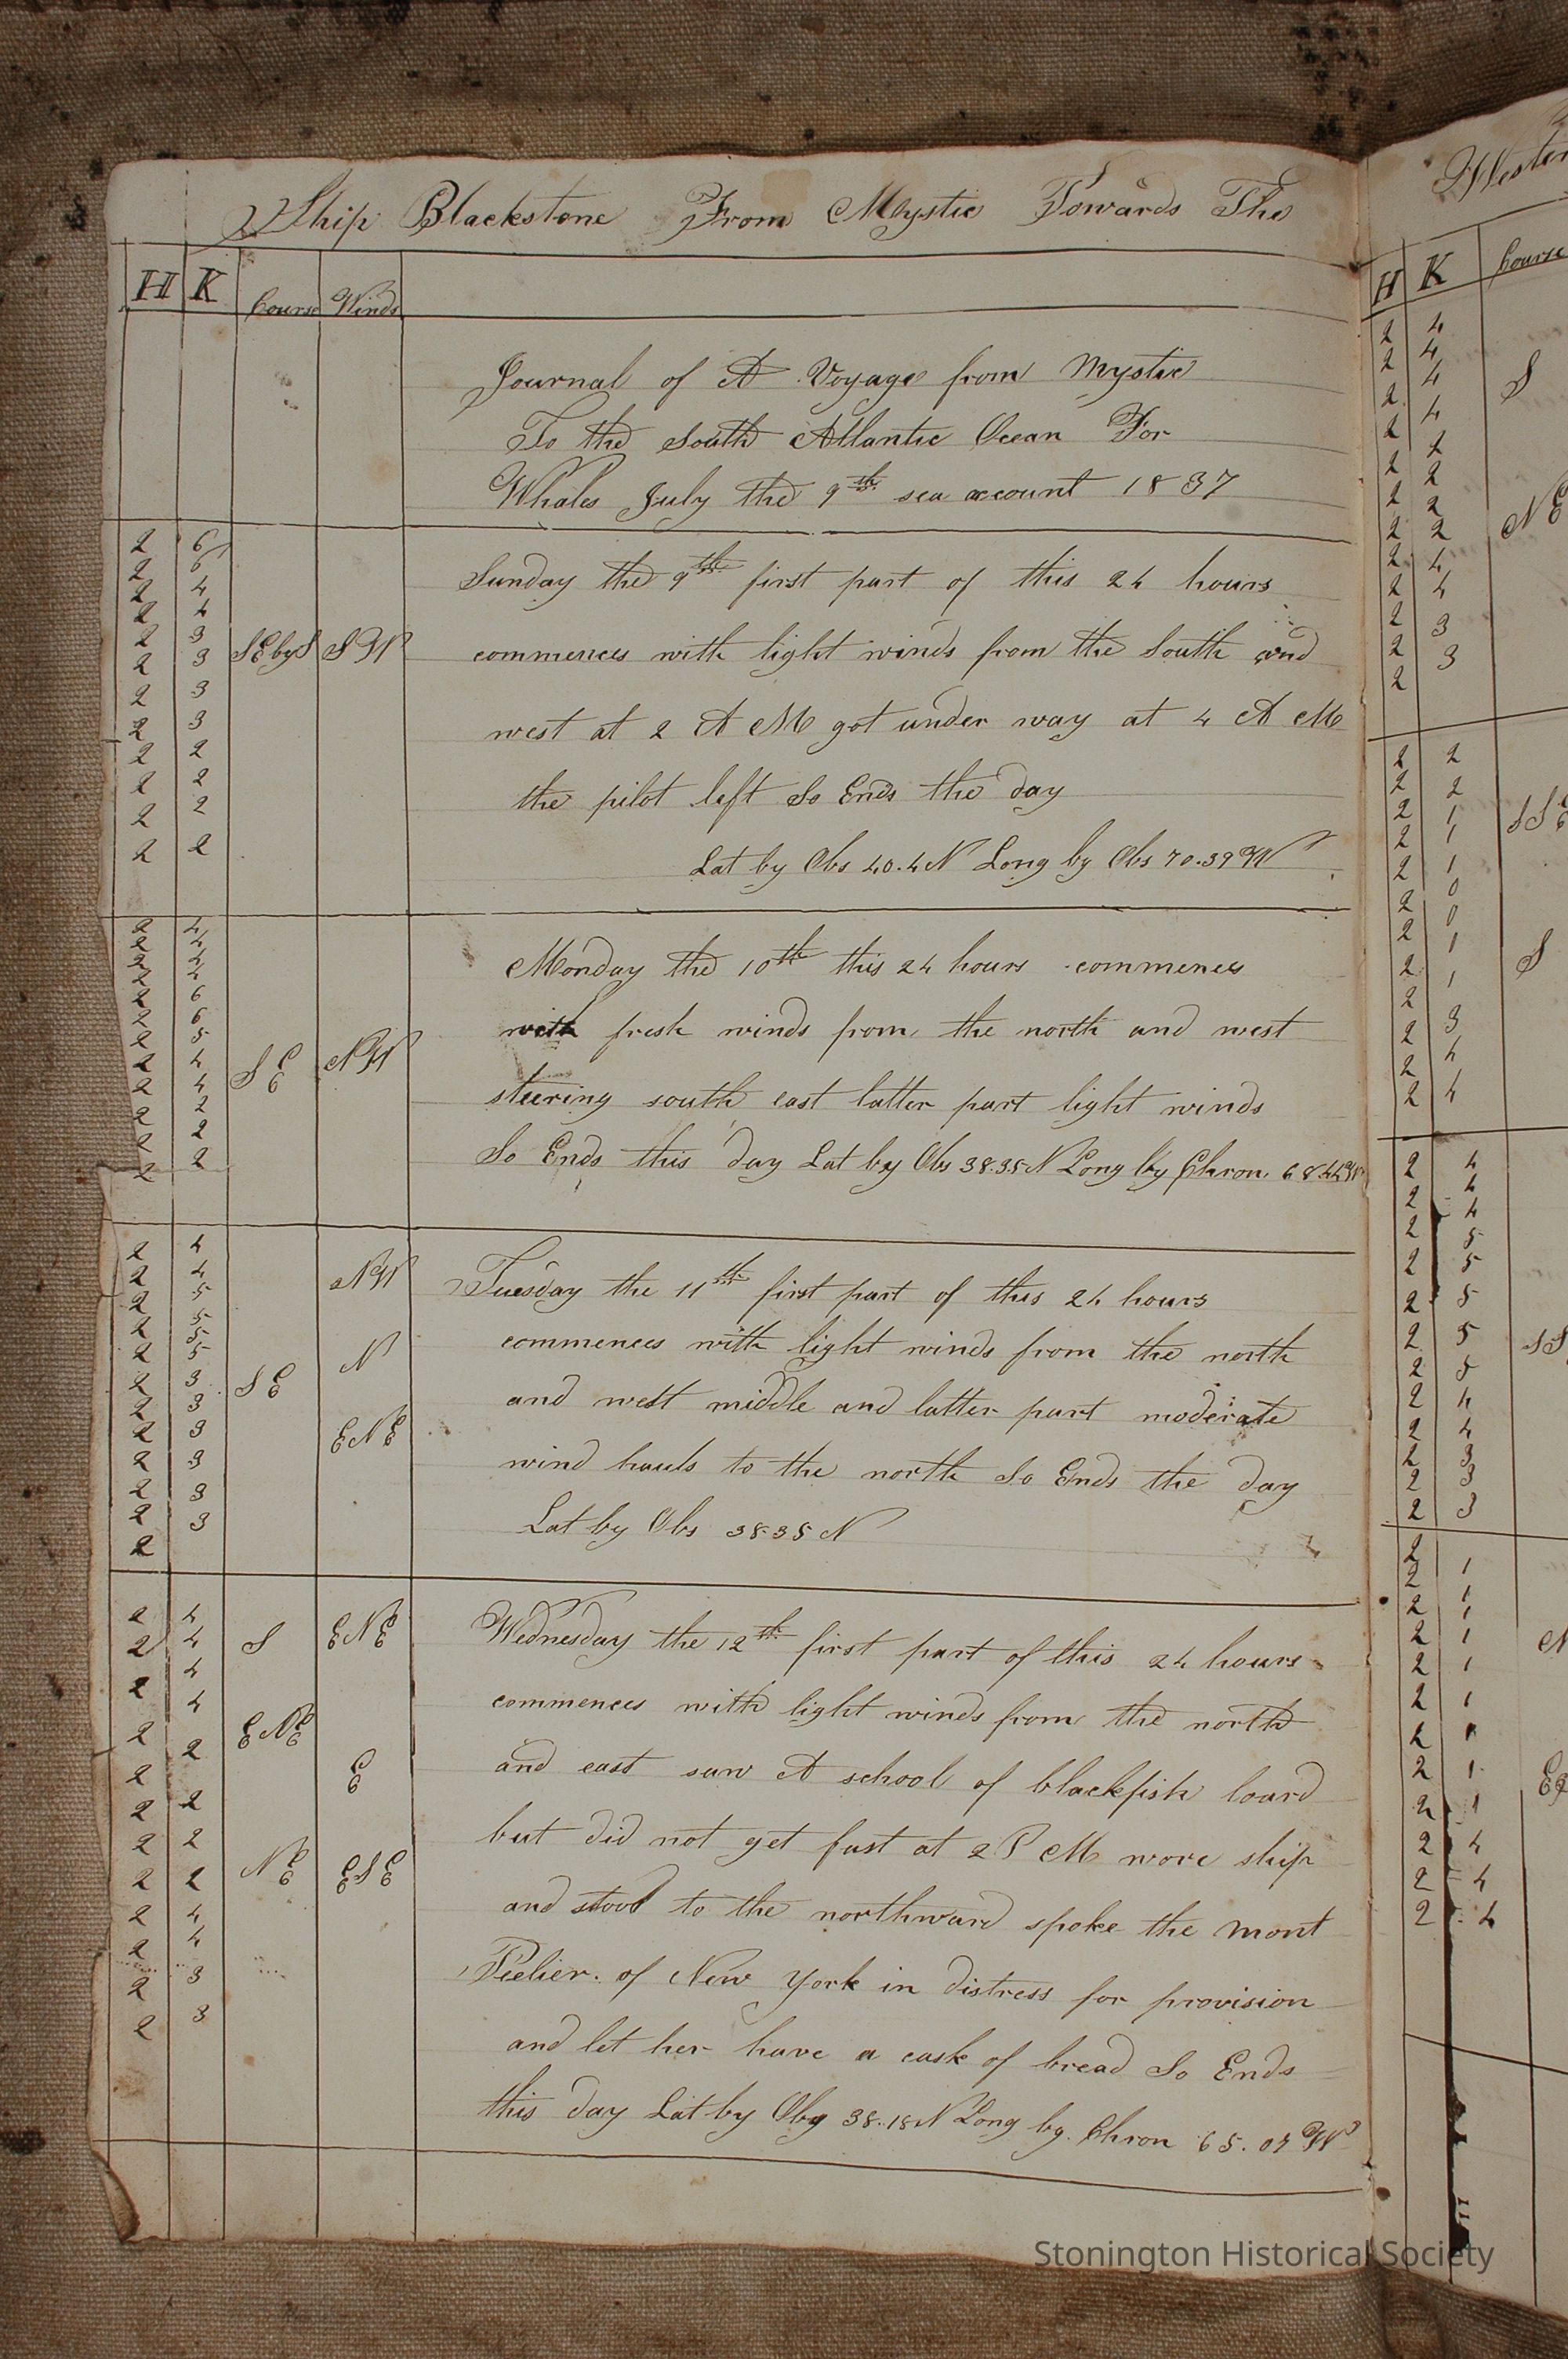 Ship Blackstone From Mystic Towards The
H K Course Winds
Journal of A Voyage from Mystic
To the South Atlantic Ocean For
Whales July the 9th sea account 1837
Sunday the 9th first part of this 24 hours
commences with light winds from the South and
west at 2 A M got under way at 4 A M
the pilot left So Ends the day
Lat by Obs 40.4 N Long by Obs 70.39 W
2 6
2 6
2 4
2 4
2 3
2 3 SE by S SW
2 3
2 3
2 2
2 2
2 2
2 2
Monday the 10th this 24 hours commences
with fresh winds from the north and west
steering south east latter part light winds
So Ends this day Lat by Obs 38.35 N Long by Chron 68.44 W
2 4
2 4
2 4
2 4
2 6
2 6
2 5
2 4 SE NW
2 4
2 2
2 2
2 2
Tuesday the 11th first part of this 24 hours
commences with light winds from the north
and west middle and latter part moderate
wind hauls to the north So Ends the day
Lat by Obs 38-35 N
2 4 NW
2 4
2 5
2 5
2 5 N
2 5
2 3 SE
2 3
2 3 ENE
2 3
2 3
2 3
2
Wednesday the 12th first part of this 24 hours
commences with light winds from the north
and east saw A school of blackfish loard
but did not get fast at 2 P M wore ship
and stood to the northward spoke the mont
Pelier. of New york in distress for provision
and let her have a cask of bread So Ends
this day Lat by Obs 38.18 N Long by. Chron 65.07 W
2 4 S ENE
2 4
2 4
2 4 ENE
2 2 E
2 2
2 2
2 2 NE ESE
2 4
2 4
2 3
2 3
Western
H K Course
2 4
2 4 S
2 4
2 4
2 2
2 2
2 2 NE
2 2
2 4
2 4
2 3
2 3
2 2
2 2
2 1 SSE
2 1
2 1
2 0
2 0
2 1 S
2 1
2 3
2 4
2 4
2 4
2 4
2 4
2 5
2 5
2 5
2 5
2 5
2 4
2 4
2 3
2 3
2 3
2 1
2 1
2 1
2 1
2 1
2 1
2 1
2 1
2 1
2 4
2 4
2 4
Stonington Historical Society